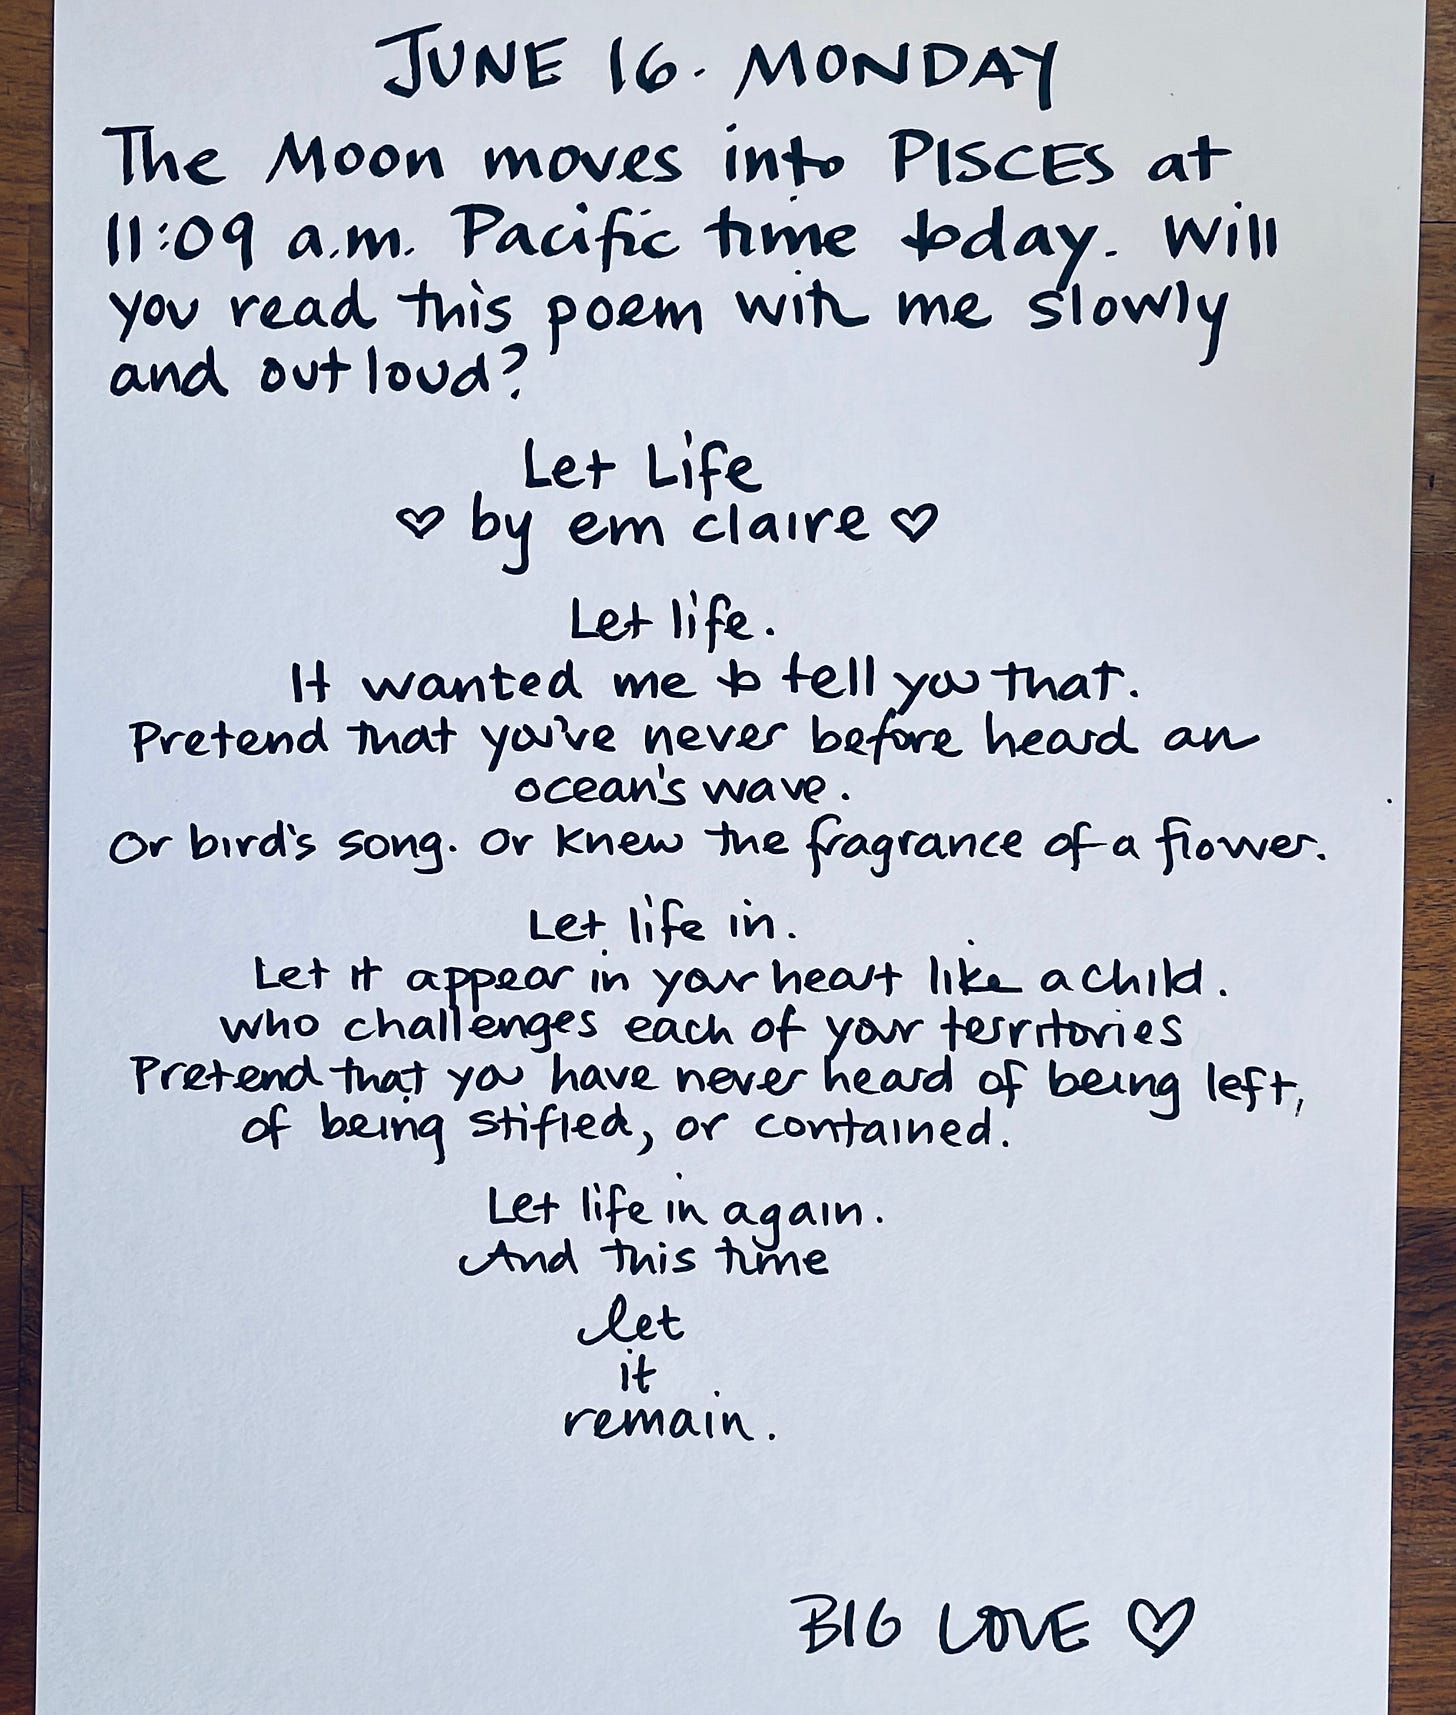 JUNE 16. MONDAY
The Moon moves into PISCES at
11:09 a.m. Pacific time today. Will
you read this poem with me slowly
and out loud?
Let Life
♡ by em claire ♡
Let life.
It wanted me to tell you that.
Pretend that you've never before heard an
ocean's wave.
Or bird's song. Or knew the fragrance of a flower.
Let life in.
Let it appear in your heart like a child.
who challenges each of your territories
Pretend that you have never heard of being left,
of being stifled, or contained.
Let life in again.
And this time
let
it
remain.
BIG LOVE ♡